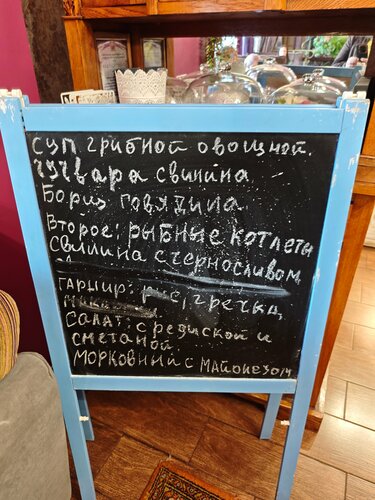 суп грибной овощной.
чучвара свинина
Борщ говядина
Второе: рыбные котлеты
Свинина с черносливом
гарнир: рис, гречка,
Салат: с редиской и
сметаной.
морковный с майонезом